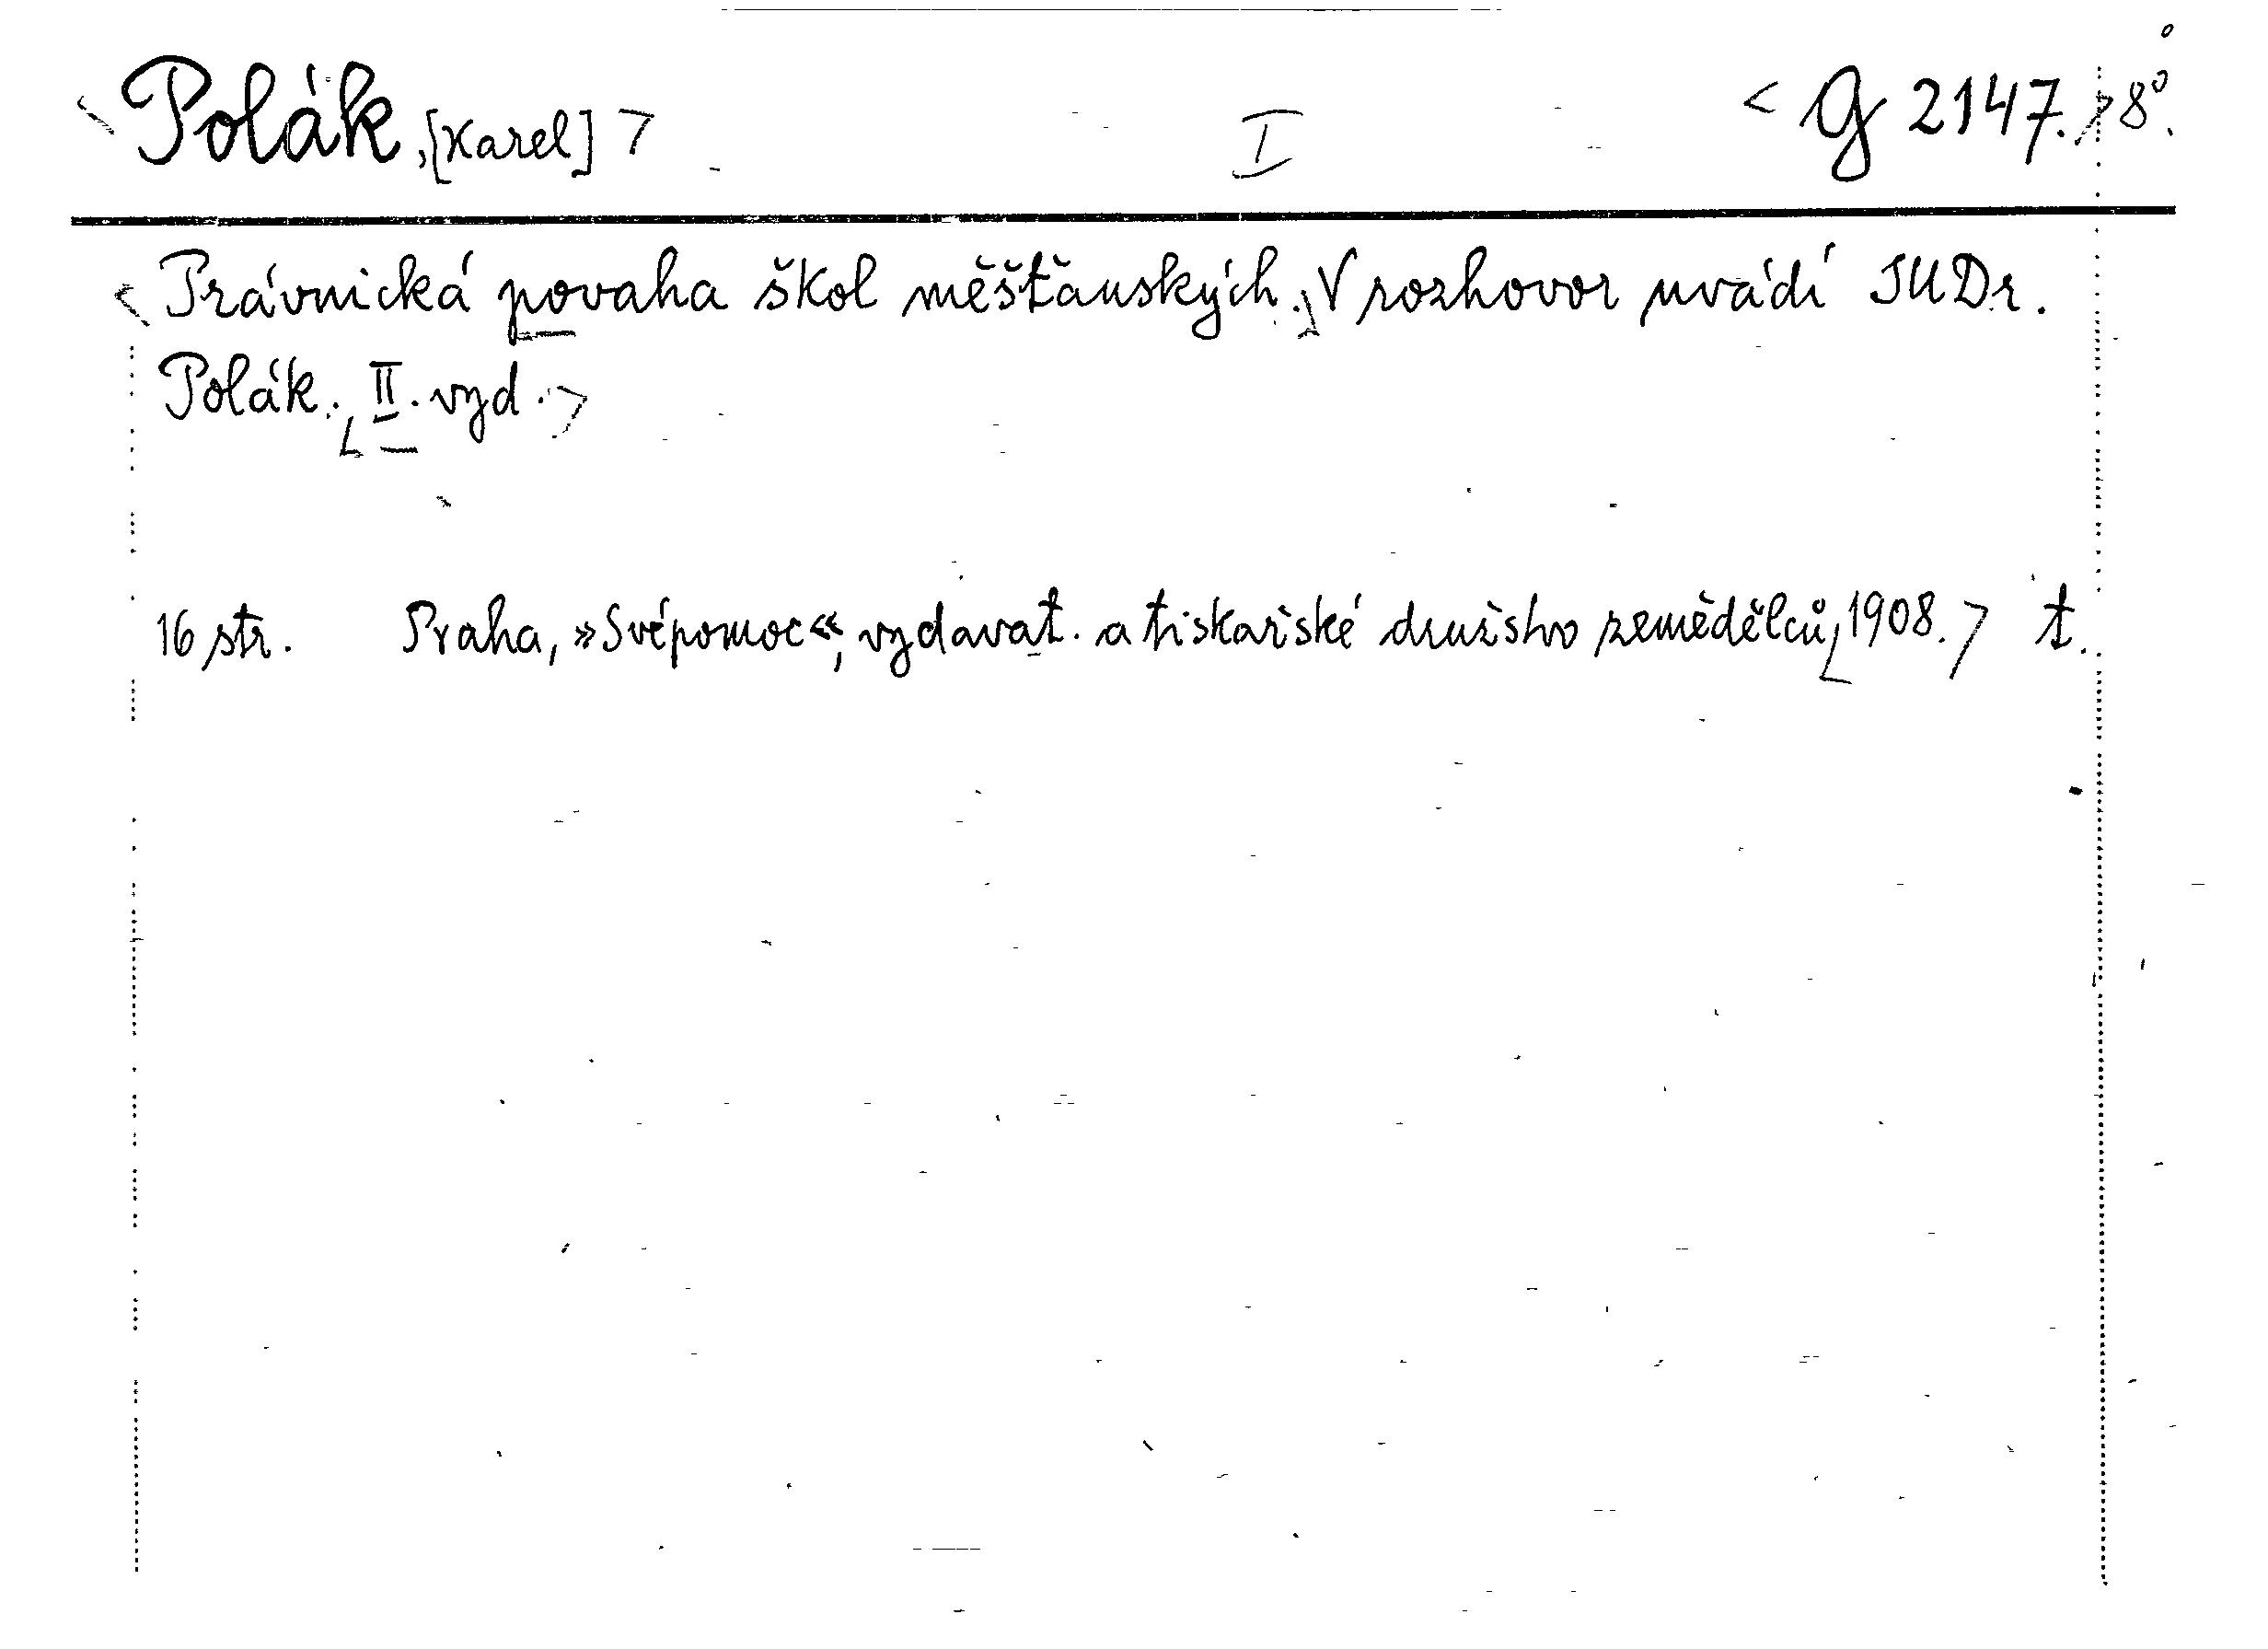 Polák, [Karel] I G 2147. 8°.
Právnická povaha škol měšťanských. V rozhovor uvádí JUDr.
Polák. II. vyd.
16 str. Praha, »Svépomoc«, vydavat. a tiskařské družstvo zemědělců, 1908. t.